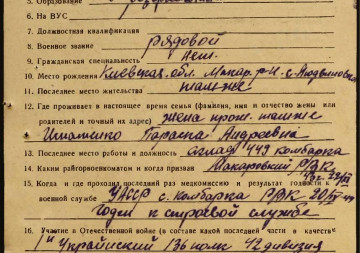 5. Образование
6. На ВУС
7. Должностная квалификация
8. Военное звание рядовой
9. Гражданская специальность нет.
10. Место рождения Киевская обл. Макар. р-н с.
11. Последнее место жительства
12. Где проживает в настоящее время семья (фамилия, имя и отчество жены или
родителей и точный их адрес) жена прож.
Андреевна
13. Последнее место работы и должность 449 комбарка
14. Каким райгорвоенкоматом и когда призван Макаровский РВК
15. Когда и где проходил последний раз медкомиссию и результат годности к
военной службе УНССР с. Комбарка РВК
Годен к строевой службе
16. Участие в Отечественной войне (в составе какой последней части и в качестве
1й Украйнский 136 полк 42 дивизия